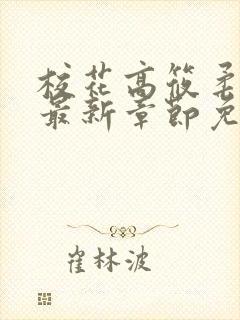 校花高筱柔
最新章节免
崔林波